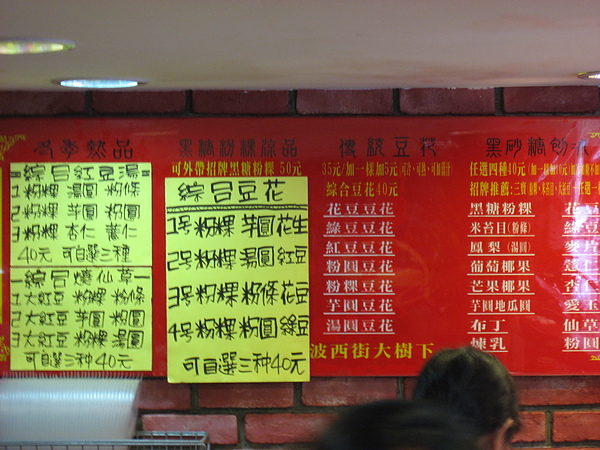 冬季熱品
綜合紅豆湯
1 粉粿 湯圓 粉條
2 粉粿 芋圓 粉圓
3 粉粿 杏仁 薏仁
40元 可自選三種
綜合燒仙草
1 大紅豆 粉粿 粉條
2 大紅豆 芋圓 粉圓
3 大紅豆 粉粿 湯圓
可自選三种40元
黑糖粉粿綜品
可外帶招牌黑糖粉粿 50元
綜合豆花
1号 粉粿 芋圓 花生
2号 粉粿 湯圓 紅豆
3号 粉粿 粉條 花豆
4号 粉粿 粉圓 綠豆
可自選三种40元
傳統豆花
35元/加一樣加5元
綜合豆花40元
花豆豆花
綠豆豆花
紅豆豆花
粉圓豆花
粉粿豆花
芋圓豆花
湯圓豆花
波西街大樹下
黑砂糖刨冰
任選四種40元
招牌推薦:
黑糖粉粿
米苔目(粉條)
鳳梨(湯圓)
葡萄椰果
芒果椰果
芋圓地瓜圓
布丁
煉乳
花豆
綠豆
麥片
薏仁
杏仁
愛玉
仙草
粉圓